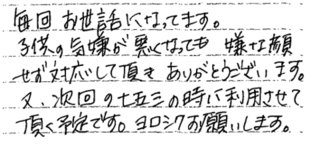 毎回 お世話になってます。
子供の気嫌が悪くなっても 嫌な顔
せず対応して頂き ありがとうございます。
又、次回の七五三の時に利用させて
頂く予定です。ヨロシクお願いします。